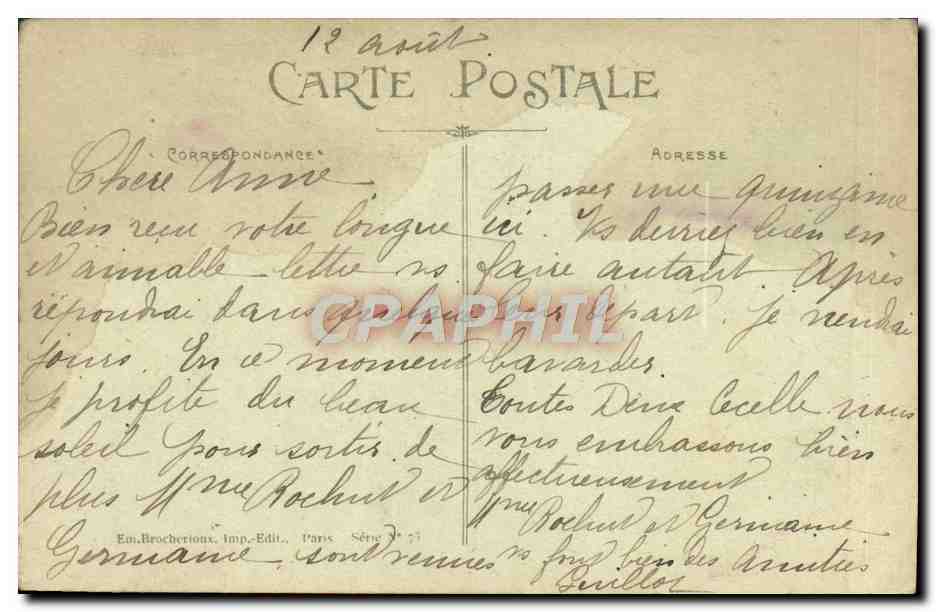 12 août
CARTE POSTALE
CORRESPONDANCE
ADRESSE
Chère Annie
Bien reçu votre longue
et aimable lettre vs
répondrai dans quelques
jours. En ce moment
je profite du beau
soleil pour sortir. de
plus Mme Rochut et
Germaine, sont venues
passer une quinzaine
ici. Vs devriez bien en
faire autant Après
leur départ. je viendrai
bavarder.
Toutes Deux Cecelle nous
vous embrassons bien
affectueusement
Mme Rochut et Germaine
vs font bien des Amitiés
Em. Brocherioux, Imp.-Edit., Paris Série N° 73
CPAPHIL